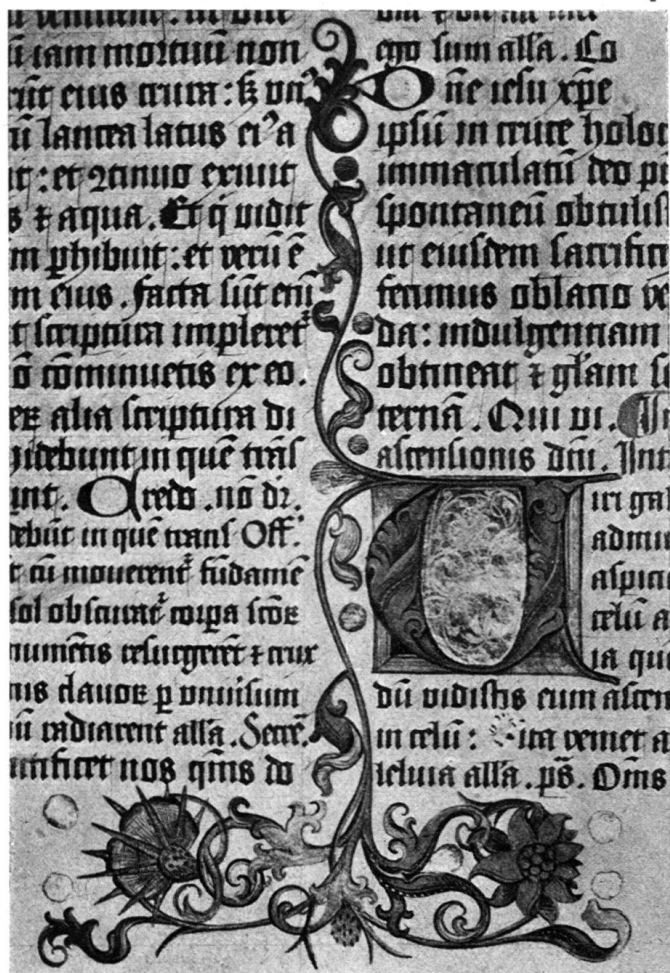 ū iam mortuū non
rūt eius crura: ꝫ vn᷒
ū lancea latus ei᷒ a
it: et ꝯtinuo exiuit
s ⁊ aqua. Et q̄ vidit
m ꝑhibuit: et verū ē
m eius. facta sūt enī
t scriptura impleret᷑
ō cōminuetis ex eo.
eꝝ alia scriptura di
videbunt in quē trās
unt. Credo. nō dr̄.
debūt in quē trans Off̄.
t cū mouerent᷑ fūdamē
sol obscurat᷑ corpa scōꝝ
numētis resurgerēt ⁊ crux
nis clauoꝝ ꝑ vniuisum
ū radiarent alla. Secre᷑.
ntificet nos qm̄s do
ego sum alla. Co
Dn̄e iesu xp̄e
ipsū in cruce holo
immaculatū deo p
spontaneū obtulis
ut eiusdem sacrifici
ferimus oblatio ve
da: indulgentiam
obtineat ⁊ gl̄am
ternā. Qui vi. In
ascensionis dn̄i. Int
Viri ga
admi
aspici
celū a
ia que
dū vidistis eum ascen
in celū: ita veniet a
leluia alla. ps̄. Om̄s